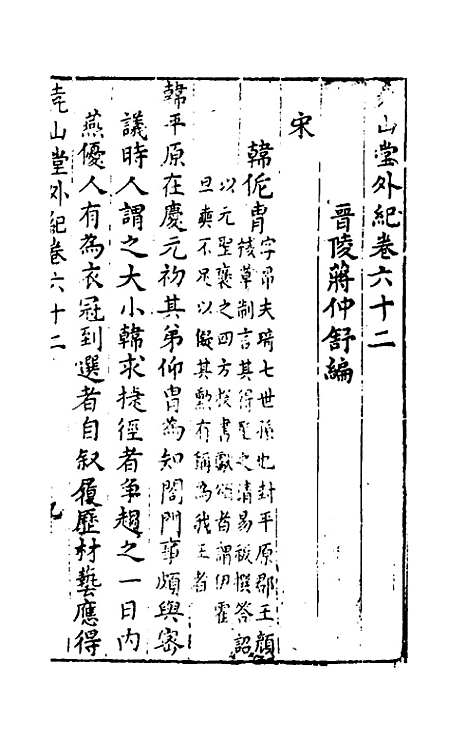 堯山堂外紀卷六十二
晋陵蔣仲舒編
宋
韓侂胄字節夫琦七世孫也封平原郡王顏
棫草制言其得聖之清易祓撰答詔
以元聖褒之四方投書獻頌者謂伊霍
旦奭不足以儗其勲有稱為我王者
韓平原在慶元初其弟仰胄為知閤門事頗與密
議時人謂之大小韓求捷徑者爭趨之一日内
燕優人有為衣冠到選者自叙履歷材藝應得
堯山堂外紀卷六十二